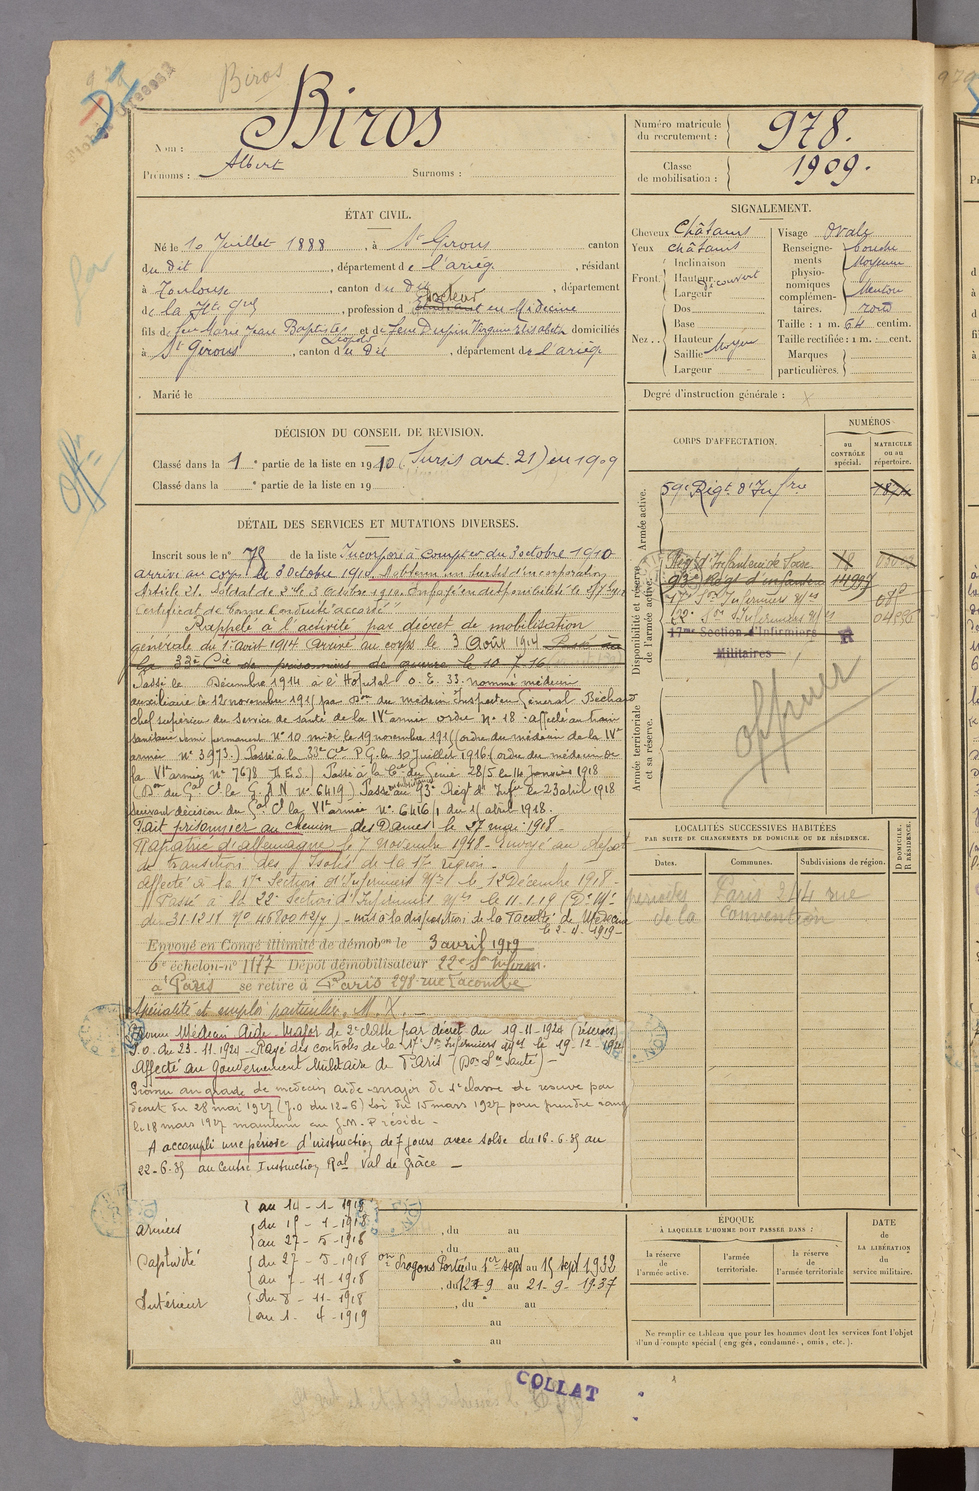 Biros
Nom : Biros
Prénoms : Albert Surnoms :
Numéro matricule du recrutement : 978.
Classe de mobilisation : 1909.
ÉTAT CIVIL.
Né le 10 Juillet 1888, à St Girons canton
du dit, département de l'ariège, résidant
à Toulouse, canton du dit, département
de la Hte Gne, profession d Docteur en Médecine
fils de feu Marie Jean Baptiste et de domiciliés
à St Girons, canton du dit, département de l'ariège
Marié le
SIGNALEMENT.
Cheveux Châtains
Yeux châtains
Front. Inclinaison
Hauteur découvert
Largeur
Nez.. Dos
Base
Hauteur
Saillie Moyen
Largeur
Visage Ovale
Renseignements physionomiques complémentaires. bouche Moyenne Menton rond
Taille : 1 m. 64 centim.
Taille rectifiée : 1 m. cent.
Marques particulières.
Degré d'instruction générale :
DÉCISION DU CONSEIL DE REVISION.
Classé dans la 1e partie de la liste en 1910 (Sursis art. 21) en 1909
Classé dans la e partie de la liste en 19
DÉTAIL DES SERVICES ET MUTATIONS DIVERSES.
Inscrit sous le n° 78 de la liste Incorporé à compter du 3 octobre 1910
arrivé au corps le 3 Octobre 1910.
Certificat de bonne Conduite accordé.
Rappelé à l'activité par décret de mobilisation
générale du 1er août 1914 Arrivé au corps le 3 Août 1914
33e Cie de prisonniers de guerre le 10.7.16
Passé le Décembre 1914 à l'Hopital O.E. 33. nommé médecin
auxiliaire le 12 novembre 1915 par Don du médecin Inspecteur Général Béchard
chef supérieur du Service de santé de la IVe armée ordre n° 18. affecté au train
sanitaire semi permanent N° 10 midi le 19 novembre 1915 (ordre du médecin de la IVe
armée N° 3973.) Passé à la 33e Cie P.G. le 10 Juillet 1916 (ordre du médecin de
la VIe armée N° 7678 Passé à la Cie du Génie 28/5 le 14 Janvier 1918
(Don du Gal Ct le G.A.N n° 6419) Passé au 93e Régt d'Infie le 23 avril 1918
suivant décision du Gal Ct la VIe armée n° 6416/1 du 15 avril 1918.
Fait prisonnier au chemin des Dames le 27 mai 1918.
Rapatrié d'allemagne le 7 Novembre 1918 - Envoyé au dépôt
de transition des Isolés de la 17e région -
affecté à la 17e Section d'Infirmiers Mres le 12 Décembre 1918 -
Passé à la 22e Section d'Infirmiers Mres le 11.1.19
du 31.12.18 N° 46800 - mis à la disposition de la Faculté de Médecine
le 2.4.1919 -
Envoyé en Congé illimité de démobon le 3 avril 1919
6e échelon - n° 1177 Dépôt démobilisateur 22e Son Infirm.
à Paris se retire à Paris 278 rue Lacombe
Spécialité et emploi particulier. M.X. -
Promu Médecin Aide Major de 2e classe par décret du 19-11-1924 (réserves)
J.O. du 23-11-1924 - Rayé des contrôles de la 17e Son Infirmiers Mres le 19-12-1924
Affecté au Gouvernement Militaire de Paris (Don Sce Santé) -
Promu au grade de médecin aide-major de 1e classe de réserve par
décret du 28 mai 1927 (J.O du 12-6) Loi du 15 mars 1927 pour prendre rang
le 18 mars 1927 maintenu au G.M.P réside -
A accompli une période d'instruction de 7 jours avec solde du 16.6.35 au
22-6-35 au Centre Instruction Ral Val de Grâce -
au 14-1-1918
armées du 15-1-1918
au 27-5-1918
Captivité du 27-5-1918
au 7-11-1918
Intérieur du 8-11-1918
au 1-4-1919
, du au
, du au
Dragons Portés du 1er sept au 15 sept 1932
, du 12-9 au 21-9-1937
, du au
au
au
CORPS D'AFFECTATION.
NUMÉROS
au CONTRÔLE spécial.
MATRICULE ou au répertoire.
Armée active.
59e Régt d'Infrie
Disponibilité et réserve de l'armée active.
93e Régt d'infanterie
17e Son Infirmiers Mres
22e Son Infirmiers Mres
17me Section d'Infirmiers
Militaires
Armée territoriale et sa réserve.
officier
LOCALITÉS SUCCESSIVES HABITÉES
PAR SUITE DE CHANGEMENTS DE DOMICILE OU DE RÉSIDENCE.
Dates. Communes. Subdivisions de région. D DOMICILE. R RÉSIDENCE.
Paris 244 rue
de la Convention
ÉPOQUE
À LAQUELLE L'HOMME DOIT PASSER DANS :
la réserve de l'armée active.
l'armée territoriale.
la réserve de l'armée territoriale
DATE DE LA LIBÉRATION du service militaire.
Ne remplir ce tableau que pour les hommes dont les services font l'objet
d'un décompte spécial (engagés, condamnés, omis, etc.).
COLLAT